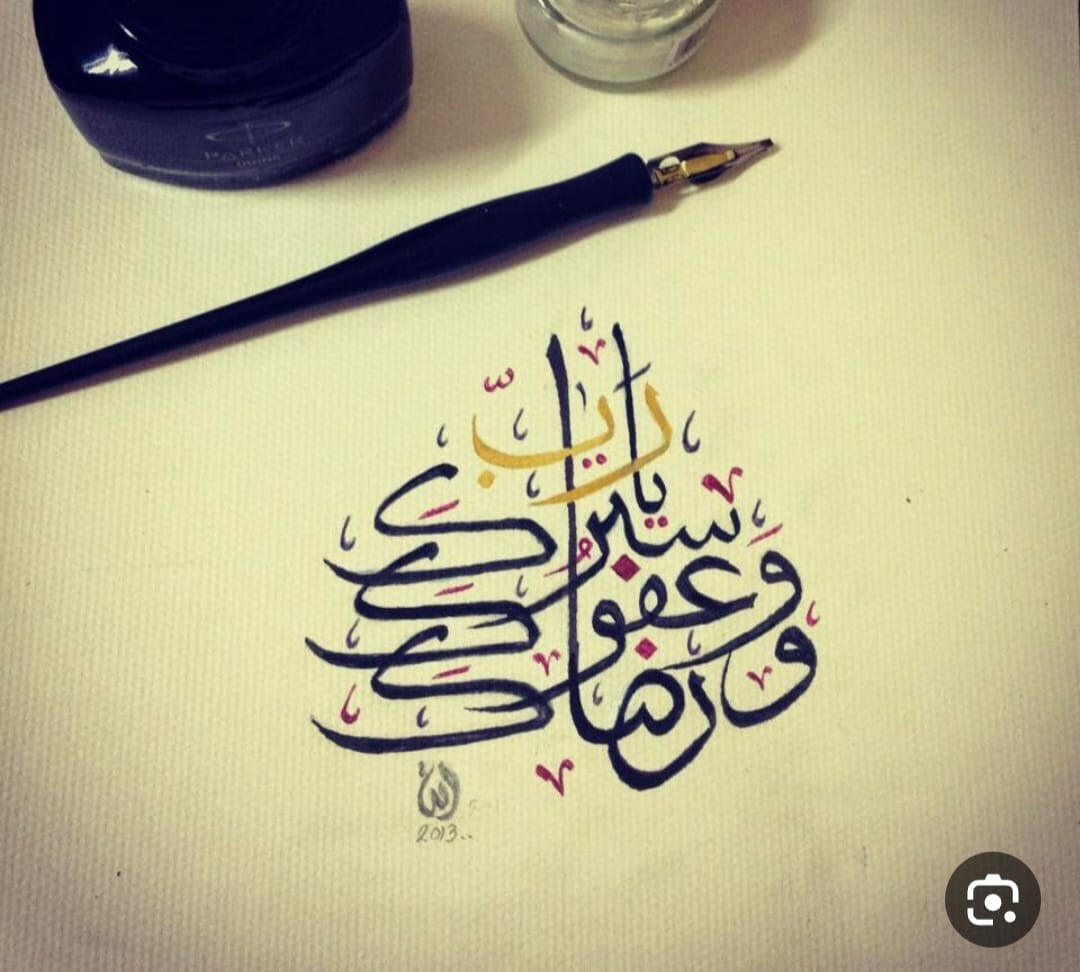 PARKER
QUINK
يا رب
سترك
وعفوك
ورضاك
2013..